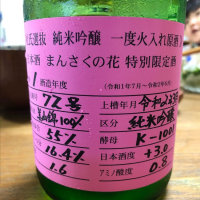 氏選抜 純米吟醸 一度火入れ原酒
本酒 まんさくの花 特別限定
1 酒造年度 (令和1年7月~
号 72号 上槽年月 令和2
100% 区分 純米吟醸
55% 酵母 K-1001
16.4% 日本酒度 +3.0
1.6 アミノ酸度 0.8